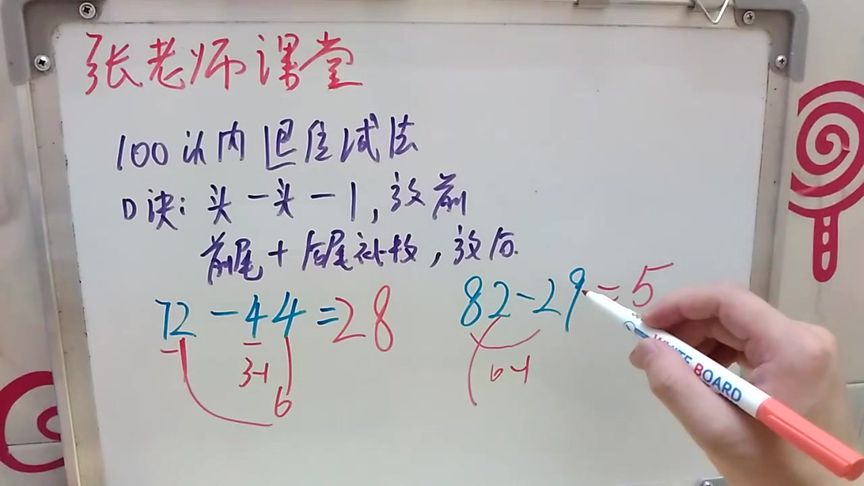 张老师课堂
100以内退位减法
口诀：头-头-1，放前
前尾+后尾补数，放后.
72-44=28
82-29=5
3-1
6-1
6
WHITE BOARD